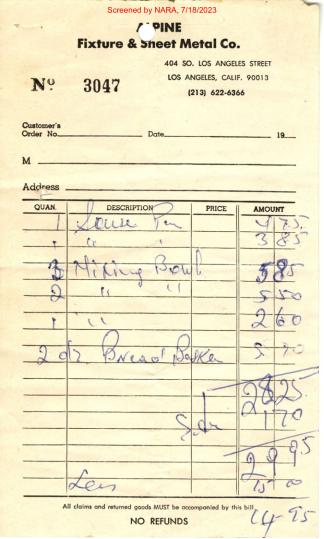 Screened by NARA, 7/18/2023
ALPINE
Fixture & Sheet Metal Co.
404 SO. LOS ANGELES STREET
LOS ANGELES, CALIF. 90013
(213) 622-6366
No 3047
Customer's
Order No. Date 19
M
Address
QUAN. DESCRIPTION PRICE AMOUNT
1 Sause Pan 4 75
1 " " 3 85
3 Mixing Bowl 5 85
2 " " 5 50
1 " " 2 60
2 dz Bread Basket 5 70
28 25
1 70
29 95
Less 15 00
All claims and returned goods MUST be accompanied by this bill
14-95
NO REFUNDS